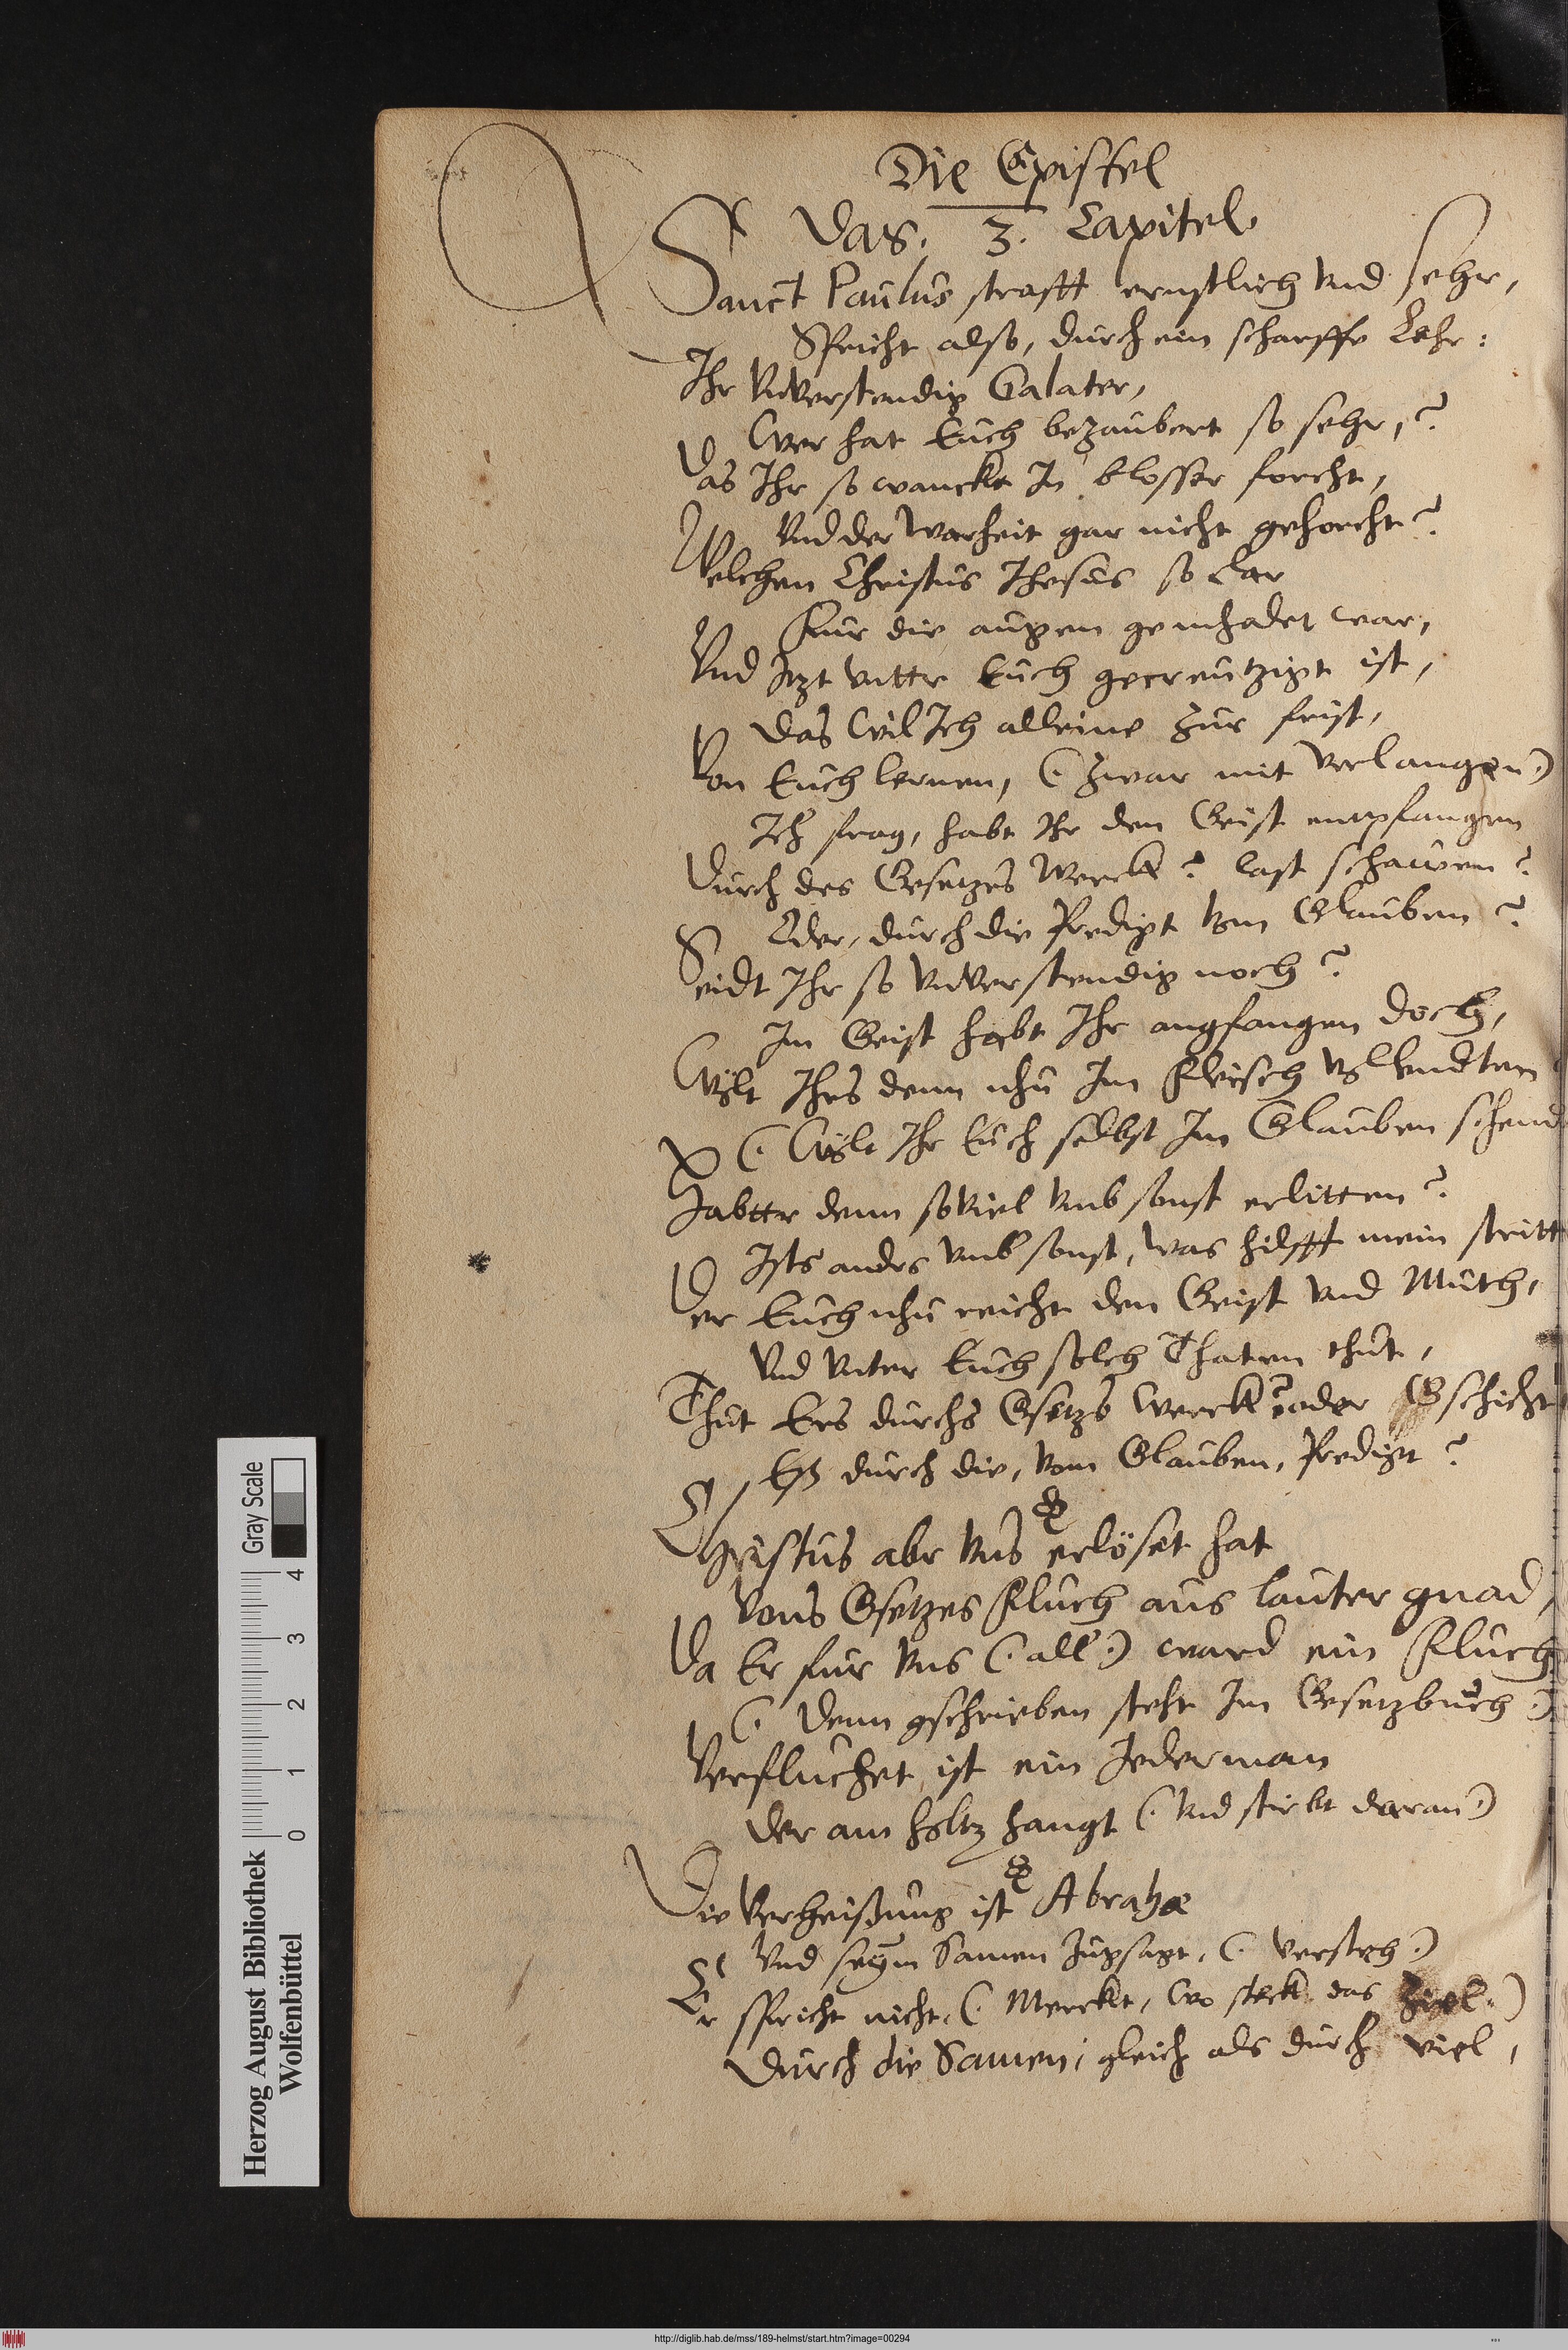 Die Epistel
Das. 3. Capitel
Sanct Paulus strafft ernstlich vnd sehr,
Spricht also, durch ein scharffe Lehr:
Ihr Vnverstendig Galater,
Wer hat Euch bezaubert so sehr,?
Das Ihr so wanckt In blosser forcht,
Vnd der Warheit gar nicht gehorcht?
Welchen Christus Ihesus so clar
Fuur die augen gemhalet war,
Vnd Itzt vnttr Euch gecreutzigt ist,
Das Wil Ich alleine zur frist,
Von Euch lernen, (. Zwar mit Verlangen.)
Ich frag, habt Ihr den Geist empfangen
Durch des Gesetzes Werck? last schawen?
Oder, durch die Predigt vom Glauben?
Seidt Ihr so Vnverstendig noch?
Im Geist habt Ihr angfangen doch,
Wolt Ihrs denn nhu Im Fleisch vollendten
(. Wolt Ihr Euch selbst Im Glauben schend
Habttr denn soViel Vmb sonst erlitten?
Ists andrs Vmb sonst, was hilfft mein stritt
Der Euch nhu reicht den Geist Vnd Muth,
Vnd Vnter Euch solch Thaten thut,
Thut Ers durchs Gsetzs Werck? oder Gschicht
Es durch die, vom Glauben, Predigt?
Christus abr Vns erlöset hat
Vons Gsetzes Fluch aus lauter gnad,
Da Er fur Vns (. all .) ward ein Fluch
(. Denn gschrieben steht Im Gesetzbuch .)
Verfluchet ist ein Jederman
Der am holtz hangt (. Vnd stirbt daran .)
Die Verheissung ist Abrahæ
Vnd seym Samen Zugsagt, (. versteh .)
Er spricht nicht, (. Merckt, wo steck das Ziel .)
Durch die Samen, gleich als durch viel,
Herzog August Bibliothek
Wolfenbüttel
0 1 2 3 4
Gray Scale
http://diglib.hab.de/mss/189-helmst/start.htm?image=00294